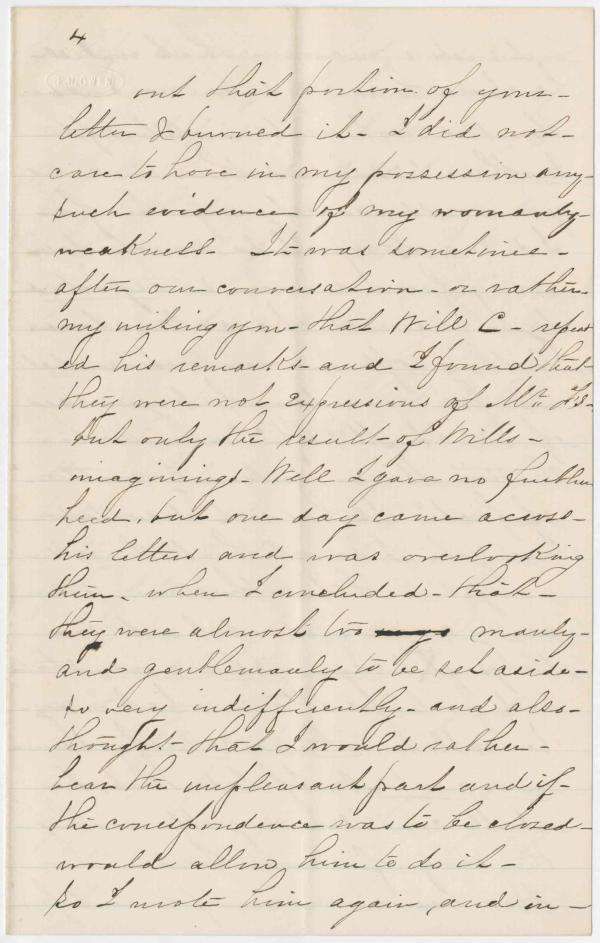 4
out that portion of your-
letter & burned it- I did not-
care to have in my possession any-
such evidence of my womanly-
weakness- It was sometime-
after our conversation- or rather-
my writing you- that Will C- repeat
ed his remarks- and I found that-
they were not expressions of Mr
but only the result- of Wills-
imaginings- Well I gave no further
heed, but one day came across-
his letters and was overlooking
them, when I concluded- that-
they were almost too manly-
and gentlemanly to be set aside-
so very indifferently- and also-
thought- that I would rather-
bear the unpleasant part and if-
the correspondence was to be closed-
would allow him to do it-
so I wrote him again, and in-